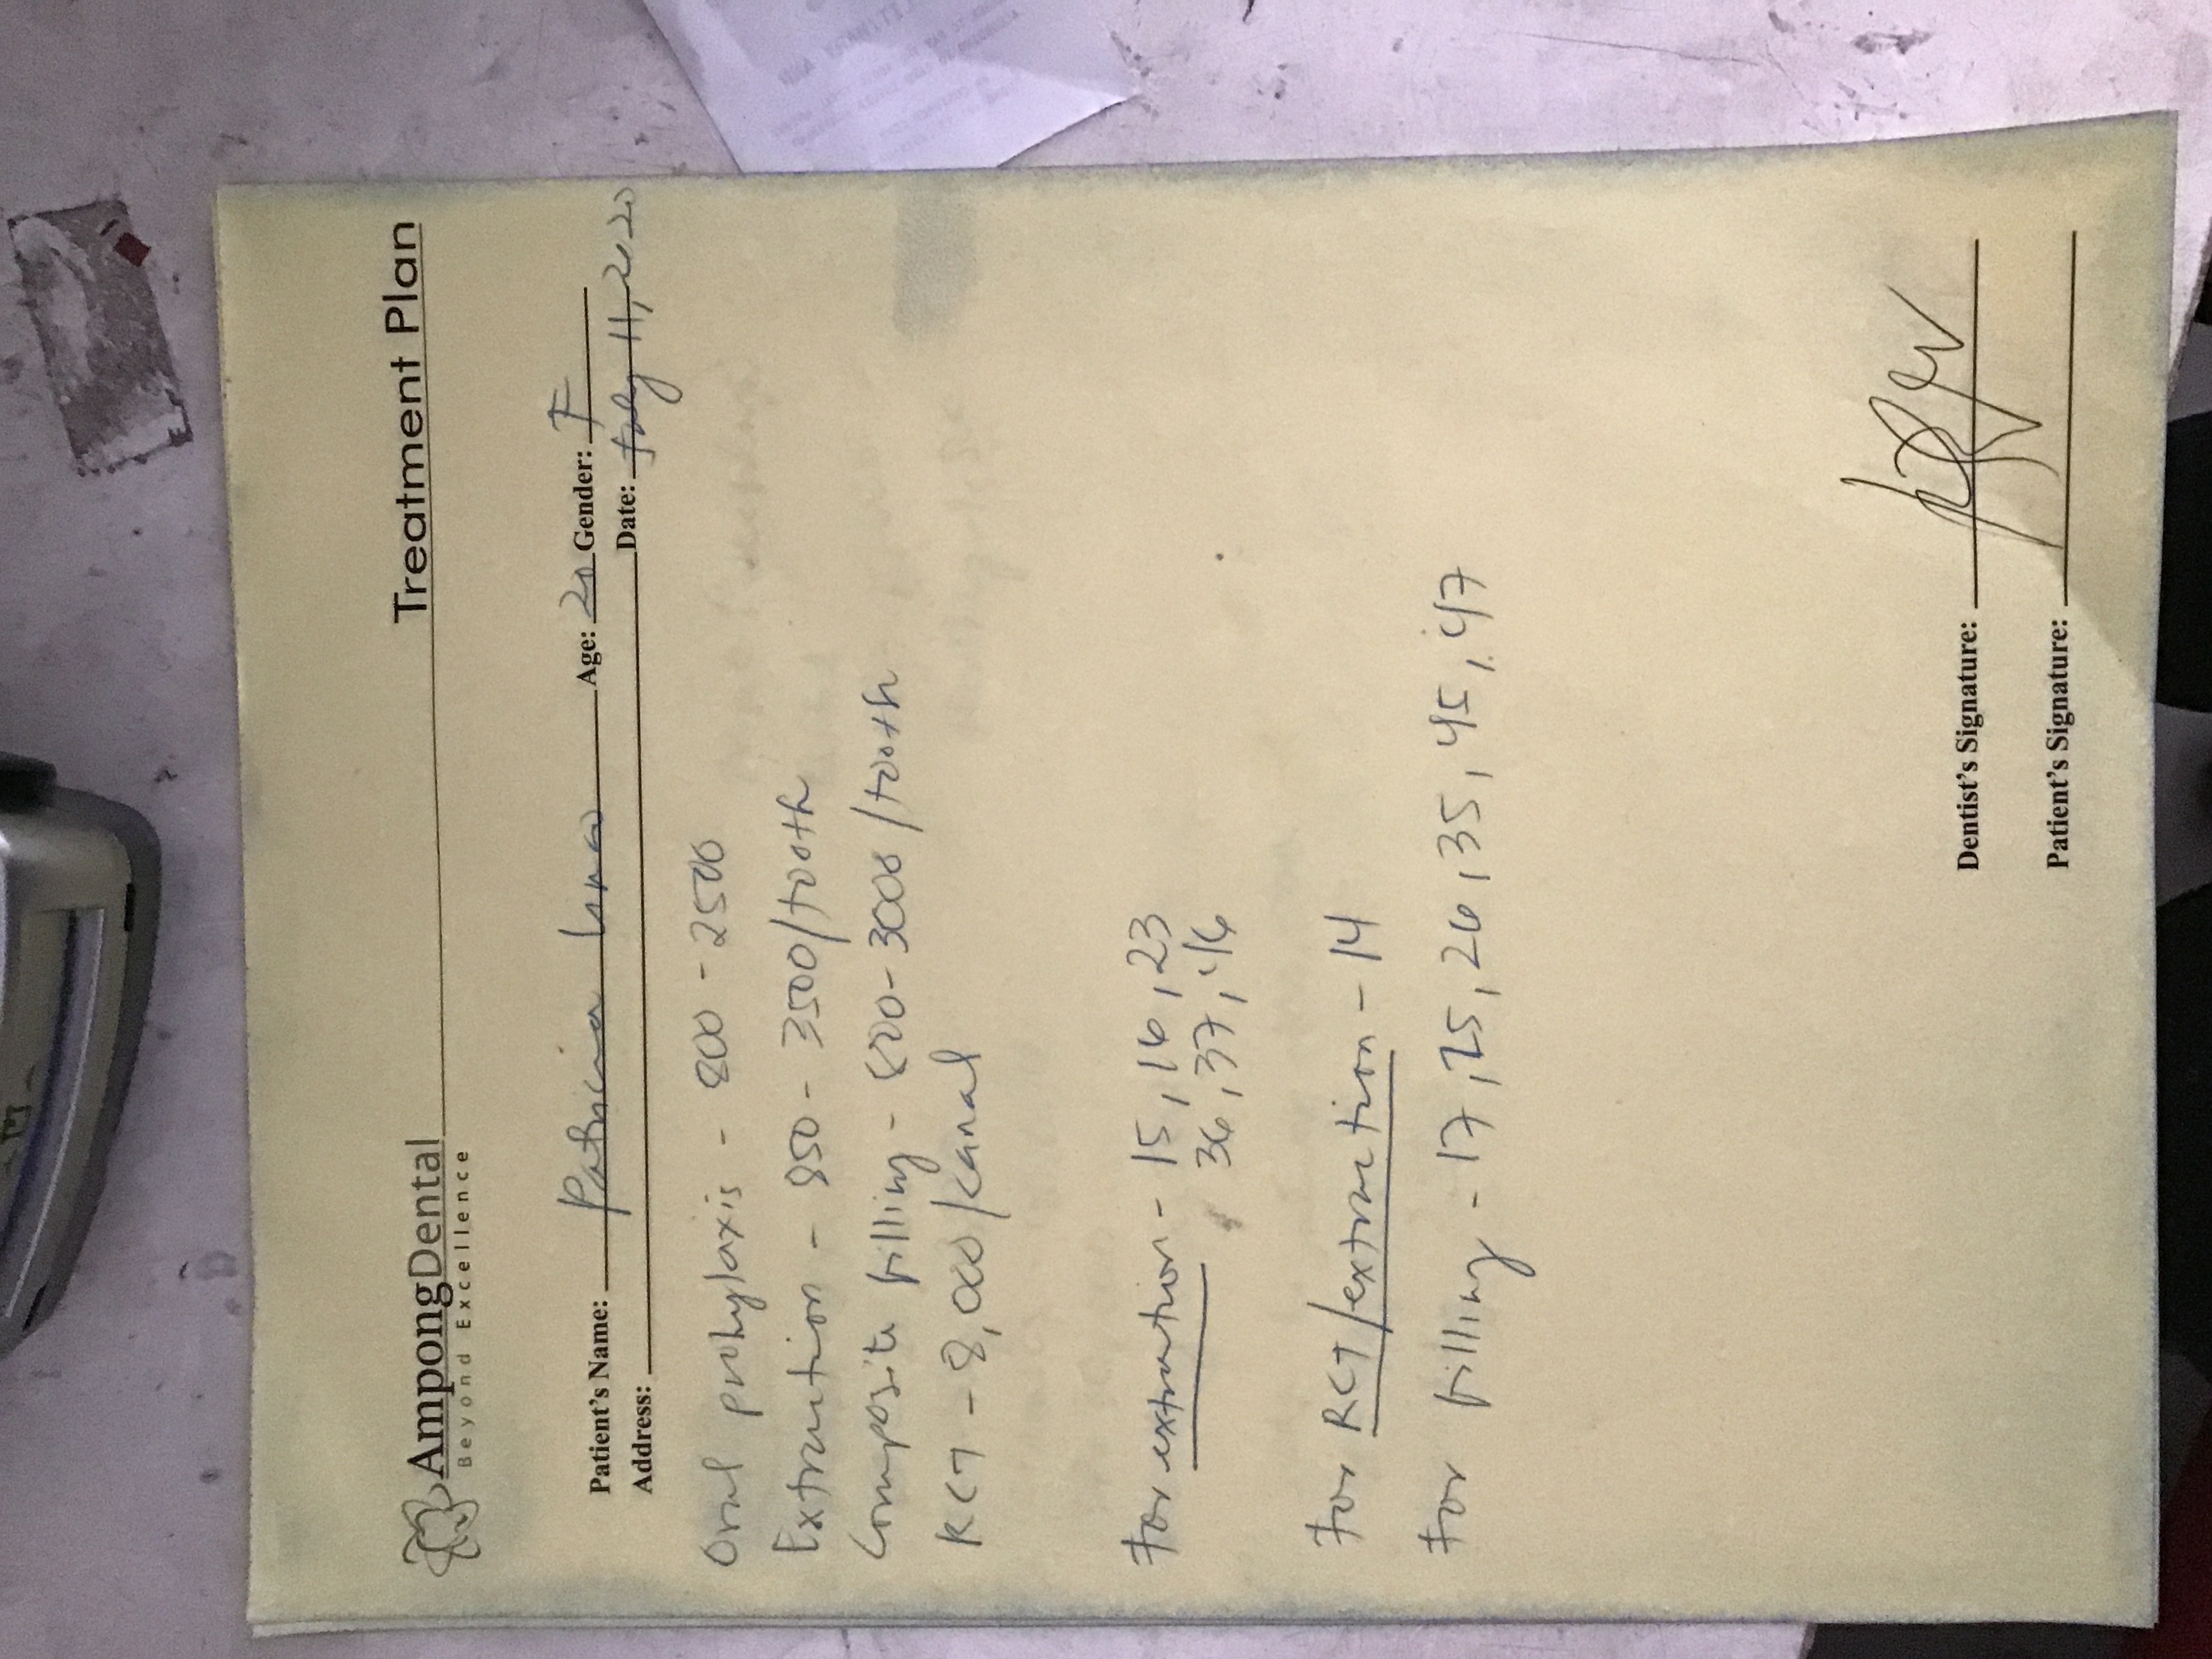 AmpongDental Treatment Plan
Beyond Excellence
Patient's Name: Patricia Luna Age: 20 Gender: F
Address: Date: July 11, 2020
Oral prophylaxis - 800 - 2500
Extraction - 850 - 3500/tooth
Composite filling - 800 - 3000/tooth
RCT - 8,000/canal
For extraction - 15, 16, 23
36, 37, 46
For RCT/extraction - 14
For filling - 17, 25, 26, 35, 45, 47
Dentist's Signature:
Patient's Signature: